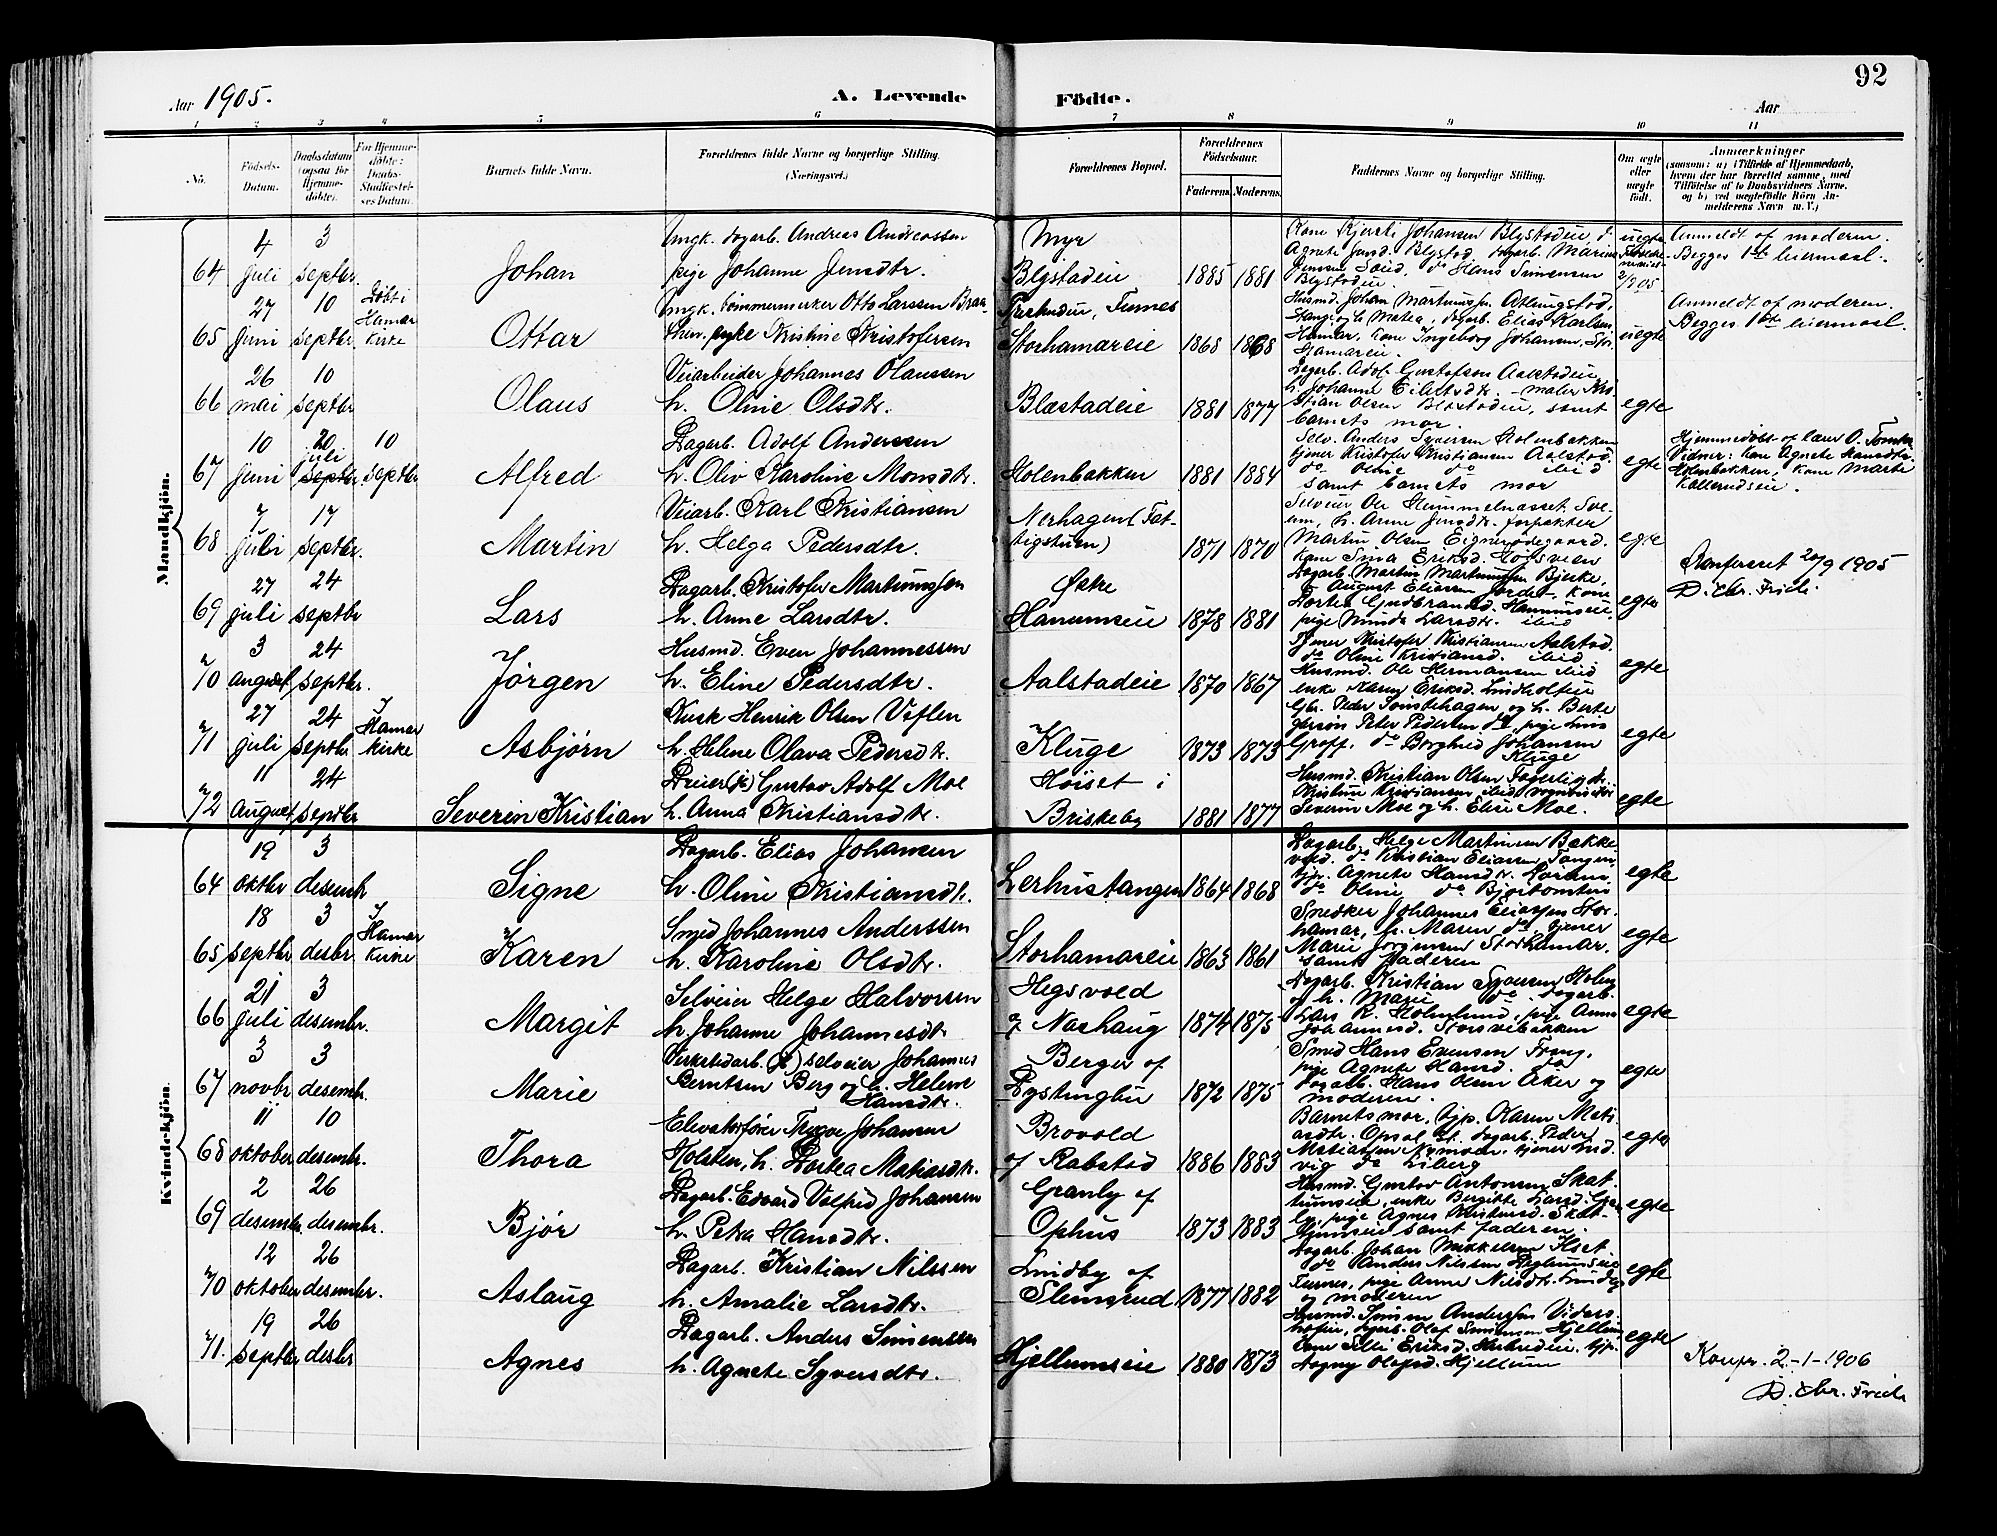 92
Aar 1905.
A. Levende Födte.
Aar
1 2 3 4 5 6 7 8 9 10 11
No. Födsels-Datum. Daabsdatum (ogsaa for Hjemmedöbte). For Hjemmedöbte: Daabs-Stadfæstelses Datum. Barnets fulde Navn. Forældrenes fulde Navne og borgerlige Stilling. (Næringsvei.) Forældrenes Bopæl. Forældrenes Födselsaar. Faderens. Moderens. Faddernes Navne og borgerlige Stilling. Om ægte eller uægte födt. Anmærkninger (saasom: a) i Tilfælde af Hjemmedaab, hvem der har forrettet samme, med Tilföielse af to Daabsvidners Navne, og b) ved uægtefödte Börn Anmelderens Navn m. V.)
Mandkjön.
64 4 juli 3 septbr. Johan
Ungk. dagarb. Andreas Andreassen
pige Johanne Jensdtr.
Myr
Blystadeie 1885 1881
Kone Kjersti Johansen Blystadeie
Agnete Jensd. Blystad, dagarb. Marius
Jensen Søeid, do Hans Simensen
Blystadeie
uegte
Anmeldt af moderen.
Begges 1ste leiermaal.
65 27 juni 10 septbr. Döbt i Hamar Kirke Ottar
Ungk. tömmermerker Otto Larssen
pike Kristine Kristofersen
Furnes
Storhamareie 1868 1868
Husmd. Johan Martinussen
Mathea, dagarb. Elias Karlsen
Hamar, Kone Ingeborg Johansen, Stor
hamareie.
uegte
Anmeldt af moderen.
Begges 1ste leiermaal.
66 26 mai 10 septbr Olaus
Veiarbeider Johannes Olaussen
h. Oline Olsdtr.
Blæstadeie 1881 1877
Dagarb. Adolf Gustafson Aalstadeie
h. Johanne Eilertsdtr. maler Kri-
stian Olsen Blæstadeie, samt
barnets mor.
egte
67 10 juni 20 juli septbr. 10 septbr Alfred
Dagarb. Adolf Anderssen
h. Oliv Karoline Monsdtr.
Holenbakken 1881 1884
Selv. Anders Syversen Holenbakken
tjener Kristofer Kristiansen Aalstad,
do Oline do ibid
samt barnets mor
egte
Hjemmedöbt af lærer O. Tomter
Vidner: Kone Agnete Hansdtr.
Holenbakken, Kone Marte
Kallerudseie.
68 7 juli 17 septbr. Martin
Veiarb. Karl Kristiansen
h. Helga Pedersdtr.
Nerhagen (Fat-
tigstuen) 1871 1870
Selveier Ole
h. Anne Jensdtr. forpakter
Martin Olsen Eignerödegaard.
Kone Sina Eriksd. Hofsveen
egte
Konfereret 20/9 1905
D. Chr. Frich.
69 27 juli 24 septbr Lars
Dagarb. Kristofer Martinussen
h. Anne Larsdtr.
Östre
Hanumseie 1878 1881
Dagarb. Martin Martinussen Bjerke,
do August Eliassen Jordet, Kone
Dortea Gudbrandsd. Hanumseie,
pige Minda Larsdtr. ibid
egte
70 3 august 24 septbr. Jörgen
Husmd. Even Johannessen
h. Eline Pedersdtr.
Aalstadeie 1870 1867
Tjener Kristofer Kristiansen Aalstad.
do Oline Kristiansd. ibid,
Husmd. Ole Hermansen ibid
enke Karen Eriksd. Lindholteie
egte
71 27 juli 24 septbr I Hamar Kirke Asbjörn
Kusk Henrik Olsen Veflen
h. Helene Olava Pedersdtr.
Kluge 1873 1873
Gbr. Peder Tomtehagen og h. Berte
Peter Pedersen do, pige
Groff, do Borghild Johansen
Kluge
egte
72 11 August 24 septbr Severin Kristian
Dreier Gustav Adolf Moe
h. Anna Kristiansdtr.
Höiset i
Briskeby 1881 1877
Husmd. Kristian Olsen Fagerli
Kristine Kristiansen ibid
Severin Moe og h. Elise Moe.
egte
Kvindekjön.
64 19 oktbr 3 desembr Signe
Dagarb. Elias Johansen
h. Oline Kristiansdtr.
Lerhustangen 1864 1868
Dagarb. Helge Martinsen Bække-
vold, do Kristian Eliassen Tangen,
tjp. Agnete Hansdtr.
do Oline do
egte
65 18 septbr 3 desbr I Hamar Kirke Karen
Smed Johannes Anderssen
h. Karoline Olsdtr.
Storhamareie 1863 1861
Snedker Johannes Eliassen Stor-
hamar, h. Maren do, tjener
Marie Jörgensen Storhamar.
samt faderen
egte
66 21 juli 3 desembr. Margit
Selveier Helge Halvorsen
h. Johanne Johannesdtr
Hegsvold
af Nashaug 1874 1875
Dagarb. Kristian Syversen Holen
og h. Marie do, dagarb.
Lars K. Holmlund, pige Anna
Johannesd. Storsvebakken
egte
67 3 novbr 3 desembr. Marie
Virkesdarb. selveier Johannes
Berntsen Berg og h. Helene
Hansdtr.
Berger af
Lystingbu 1872 1875
Smed Hans Evensen Frang,
pige Agnete Hansd. do
dagarb. Hans Olsen Aker og
moderen.
egte
68 11 oktober 10 desembr. Thora
Elevatorförer Trygve Johansen
Holsten, h. Dortea Matiasdtr.
Brovold
af Kabstad 1886 1883
Barnets mor, tjp. Karen Mati-
asdtr. Opsal, dagarb. Peder
Matiassen, tjener Lud-
vig do Liberg
egte
69 2 desembr. 26 desembr. Björ
Dagarb. Edvard Valfred Johansen
h. Petra Hansdtr.
Granly af
Ophus 1873 1883
Husmd. Gustav Antonsen Skat-
tumseie, enke Bergitte Larsd. Gran-
ly, pige Agnes Kristiansd. Skat-
tumseie samt faderen.
egte
70 12 oktober 26 desembr. Aslaug
Dagarb. Kristian Nilssen
h. Amalie Larsdtr.
Lindby af
Slemsrud 1877 1882
Dagarb. Johan Mikkelsen
do Anders Nilssen
Furnes, pige Anna Nilsdtr. Lindby
og moderen
egte
71. 19 septbr 26 desbr Agnes
Dagarb. Anders Simenssen
h. Agnete Syversdtr.
Hjellumseie 1880 1873
Husmd. Simen Andersen Viders-
hofeie, dagarb. Olaf Simensen Hjellum
Kone Sille Eriksd.
Dagny Olafsd. Hjellum
egte
Konfr. 2-1-1906
D. Chr. Frich